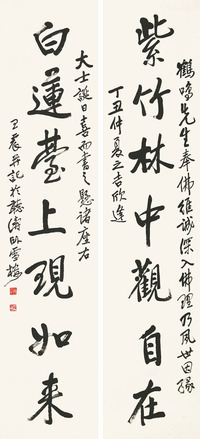 紫竹林中觀自在
白蓮臺上現如来
鶴鳴先生奉佛維誠深入佛理乃夙世因緣
丁丑仲夏之吉欣逢
大士誕日喜而書之懸諸座右
王震并記於聽濤卧雪樓